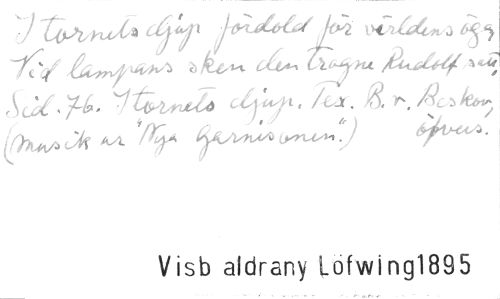 I tornets djup fördold för världens öga,
Vid lampans sken den trogne Rudolf satt,
Sid. 76. I tornets djup. Tex. B. v. Beskow,
(musik ur "Nya Garnisonen".) öfvers.
Visb aldrany Löfwing1895